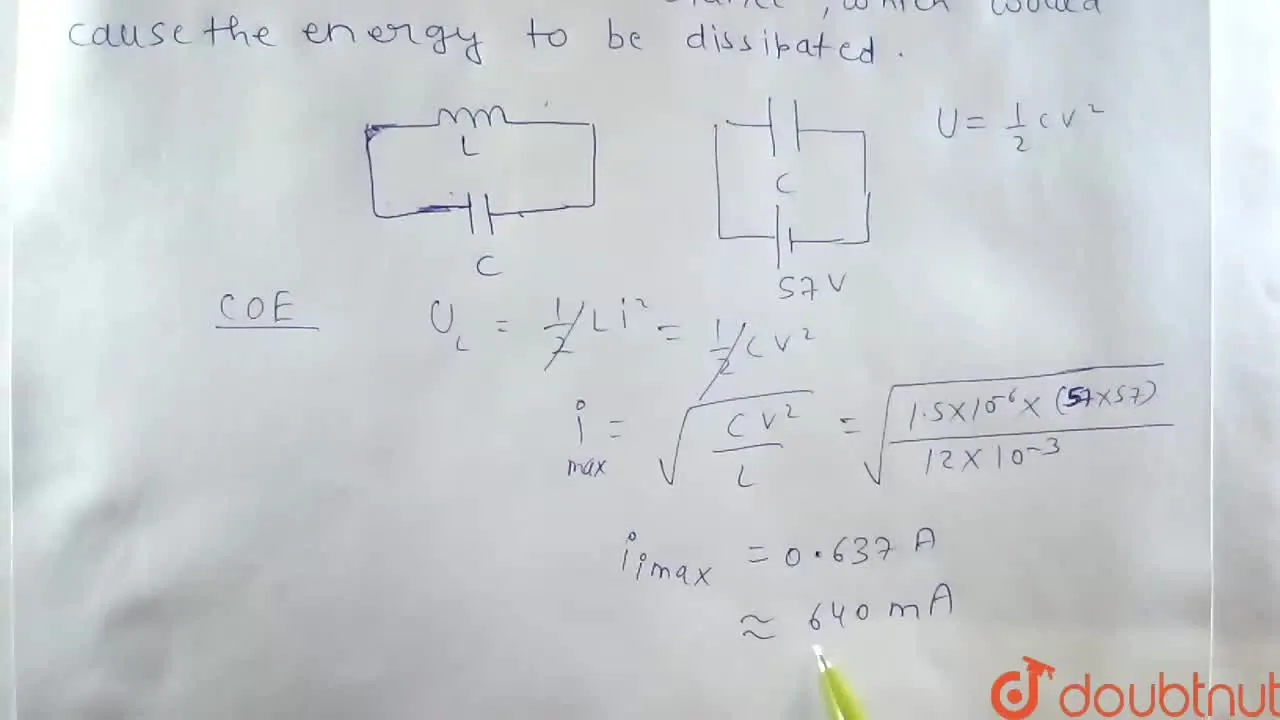 , which would
cause the energy to be dissipated.
L
C
C
57 V
U = 1/2 CV²
COE
U_L = 1/2 Li² = 1/2 CV²
i_max = √(CV²/L) = √(1.5×10⁻⁶ × (57×57) / 12×10⁻³)
i_imax = 0.637 A
≈ 640 mA
doubtnut